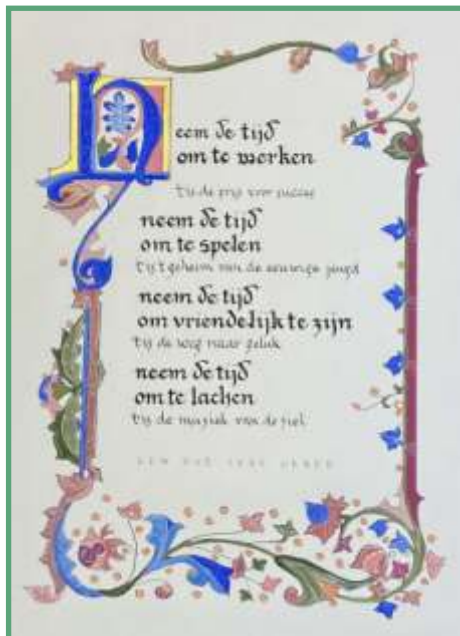 Neem de tijd
om te werken
't is de prijs voor succes
neem de tijd
om te spelen
't is 't geheim van de eeuwige jeugd
neem de tijd
om vriendelijk te zijn
't is de weg naar geluk
neem de tijd
om te lachen
't is de muziek van de ziel